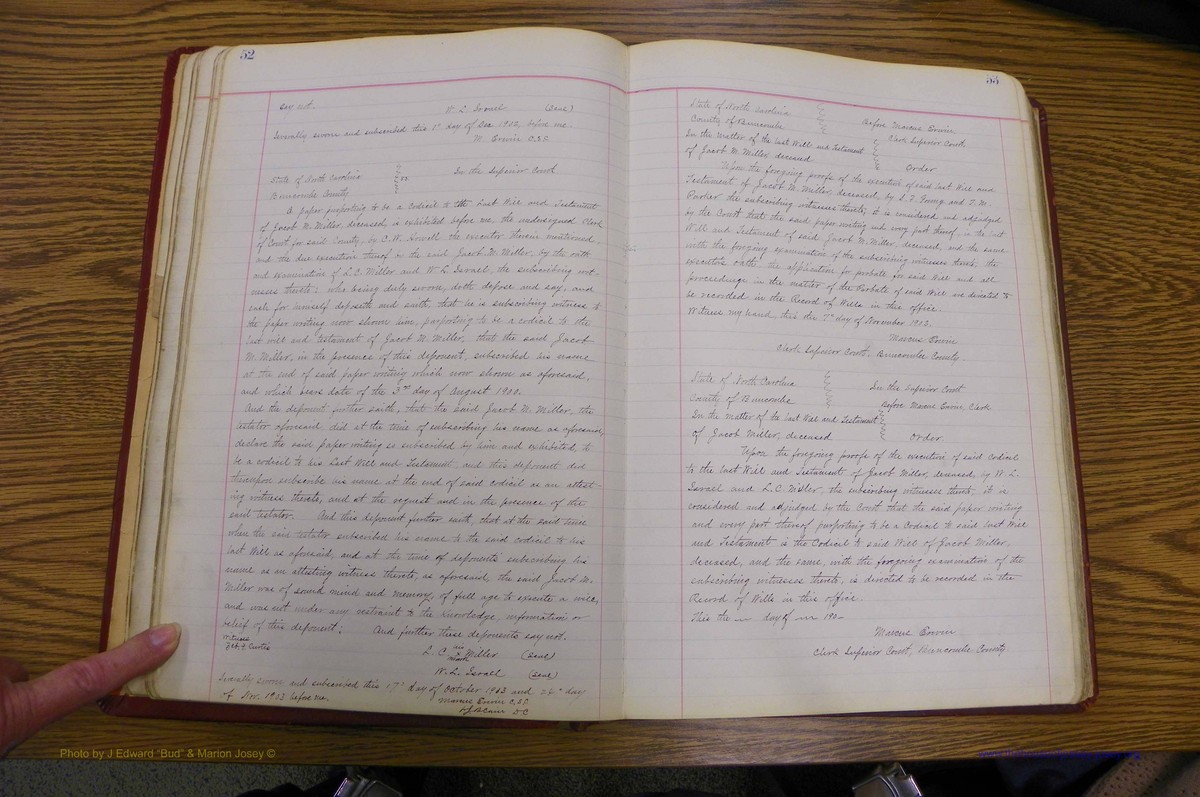 52
say not.
W. L. Israel (Seal)
Severally sworn and subscribed this 1st day of Dec 1902, before me.
M. Erwin C.S.C.
State of North Carolina
Buncombe County
ss.
In the Superior Court
A paper purporting to be a codicil to the Last Will and Testament
of Jacob M. Miller, deceased, is exhibited before me, the undersigned Clerk
of Court for said County, by the executor therein mentioned,
and the due execution thereof by the said Jacob M. Miller, by the oath
and examination of L. C. Miller and W. L. Israel, the subscribing wit-
nesses thereto; who being duly sworn, doth depose and say, and
each for himself deposeth and saith, that he is subscribing witness to
the paper writing now shown him, purporting to be a codicil to the
last will and testament of Jacob M. Miller, that the said Jacob
M. Miller, in the presence of this deponent, subscribed his name
at the end of said paper writing which now shown as aforesaid,
and which bears date of the 3rd day of August 1900.
And the deponent further saith, that the said Jacob M. Miller, the
testator aforesaid, did at the time of subscribing his name as aforesaid,
declare the said paper writing so subscribed by him and exhibited to
be a codicil to his Last Will and Testament, and this deponent did
thereupon subscribe his name at the end of said codicil as an attest-
ing witness thereto, and at the request and in the presence of the
said testator. And this deponent further saith, that at the said time
when the said testator subscribed his name to the said codicil to his
last Will as aforesaid, and at the time of deponents subscribing his
name as an attesting witness thereto, as aforesaid, the said Jacob M.
Miller was of sound mind and memory, of full age to execute a will,
and was not under any restraint to the knowledge, information or
belief of this deponent; And further these deponents say not.
Witness
Curtis
L. C. his mark Miller (Seal)
W. L. Israel (Seal)
Severally sworn and subscribed this 17th day of October 1903 and 24th day
of Nov. 1903 before me.
Marcus Erwin C.S.C.
D C
53
State of North Carolina
County of Buncombe
In the matter of the last Will and Testament
of Jacob M. Miller, deceased
Before Marcus Erwin
Clerk Superior Court
Order
Upon the foregoing proofs of the execution of said last Will and
Testament of Jacob M. Miller, deceased, by S. F. Young and T. M.
Parker the subscribing witnesses thereto; it is considered and adjudged
by the Court that the said paper writing and every part thereof, is the last
Will and Testament of said Jacob M. Miller, deceased, and the same
with the foregoing examination of the subscribing witnesses thereto, the
executors oath, the application for probate for said Will and all
proceedings in the matter of the Probate of said Will are directed to
be recorded in the Record of Wills in this office.
Witness my hand, this the 7th day of November 1903.
Marcus Erwin
Clerk Superior Court, Buncombe County
State of North Carolina
County of Buncombe
In the matter of the last Will and Testament
of Jacob Miller, deceased
In the Superior Court
Before Marcus Erwin Clerk
Order.
Upon the foregoing proofs of the execution of said Codicil
to the last Will and Testament of Jacob Miller, deceased, by W. L.
Israel and L. C. Miller, the subscribing witnesses thereto, it is
considered and adjudged by the Court that the said paper writing
and every part thereof purporting to be a Codicil to said last Will
and Testament is the Codicil to said Will of Jacob Miller,
deceased, and the same, with the foregoing examination of the
subscribing witnesses thereto, is directed to be recorded in the
Record of Wills in this office.
This the — day of — 190-
Marcus Erwin
Clerk Superior Court, Buncombe County
Photo by J Edward "Bud" & Marion Josey ©